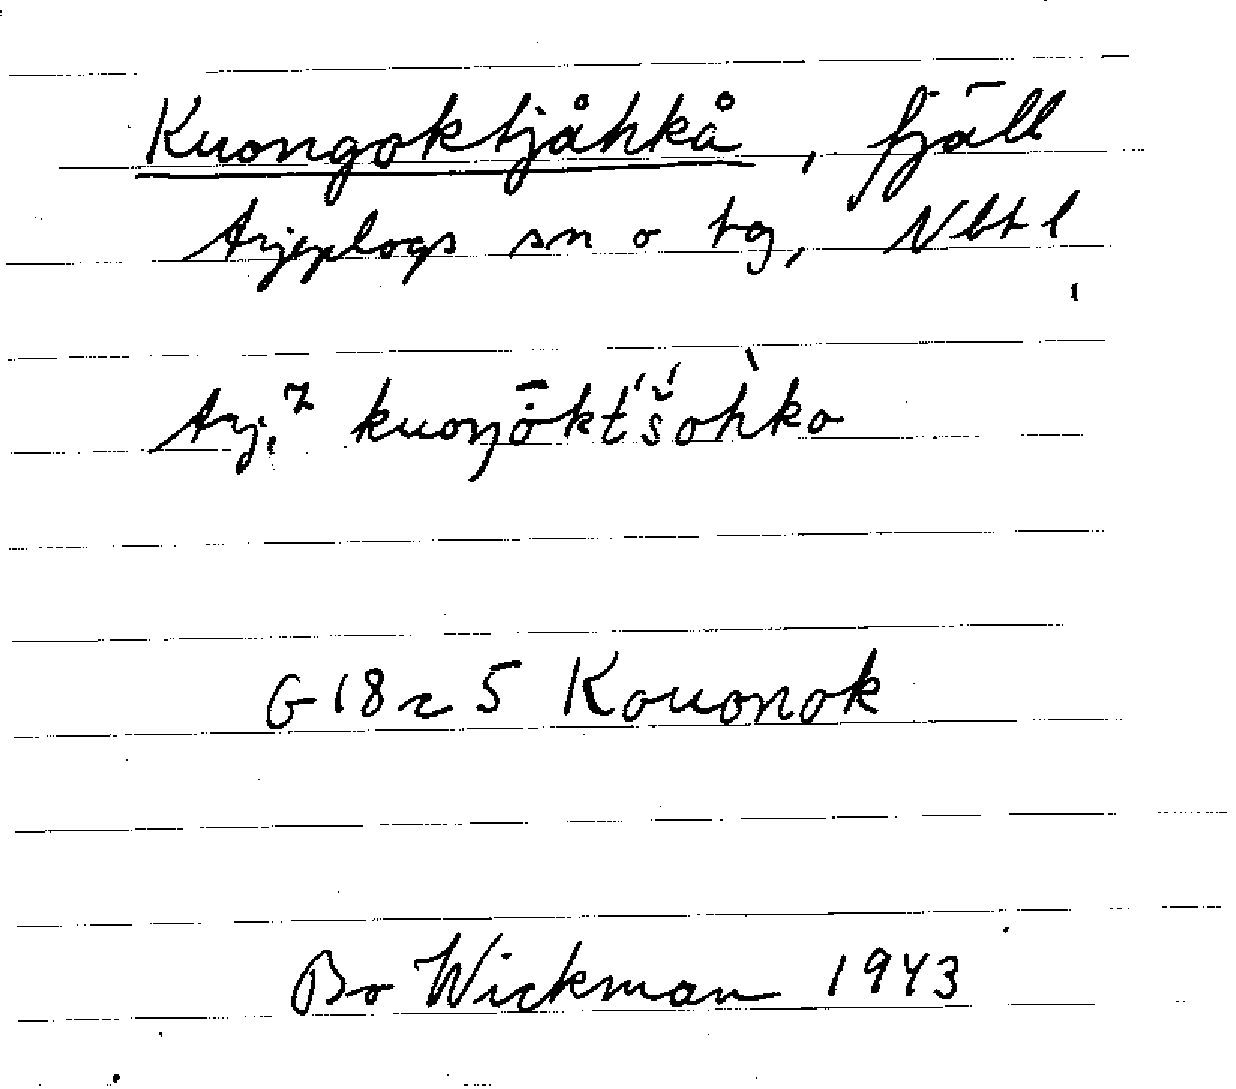 Kuongoktjåhkå, fjäll
Arjeplogs sn o tg, Nbt l
Arj.7 kuoŋō̇kt́š́oh̀ko
G 18 r 5 Kouonok
Bo Wickman 1943